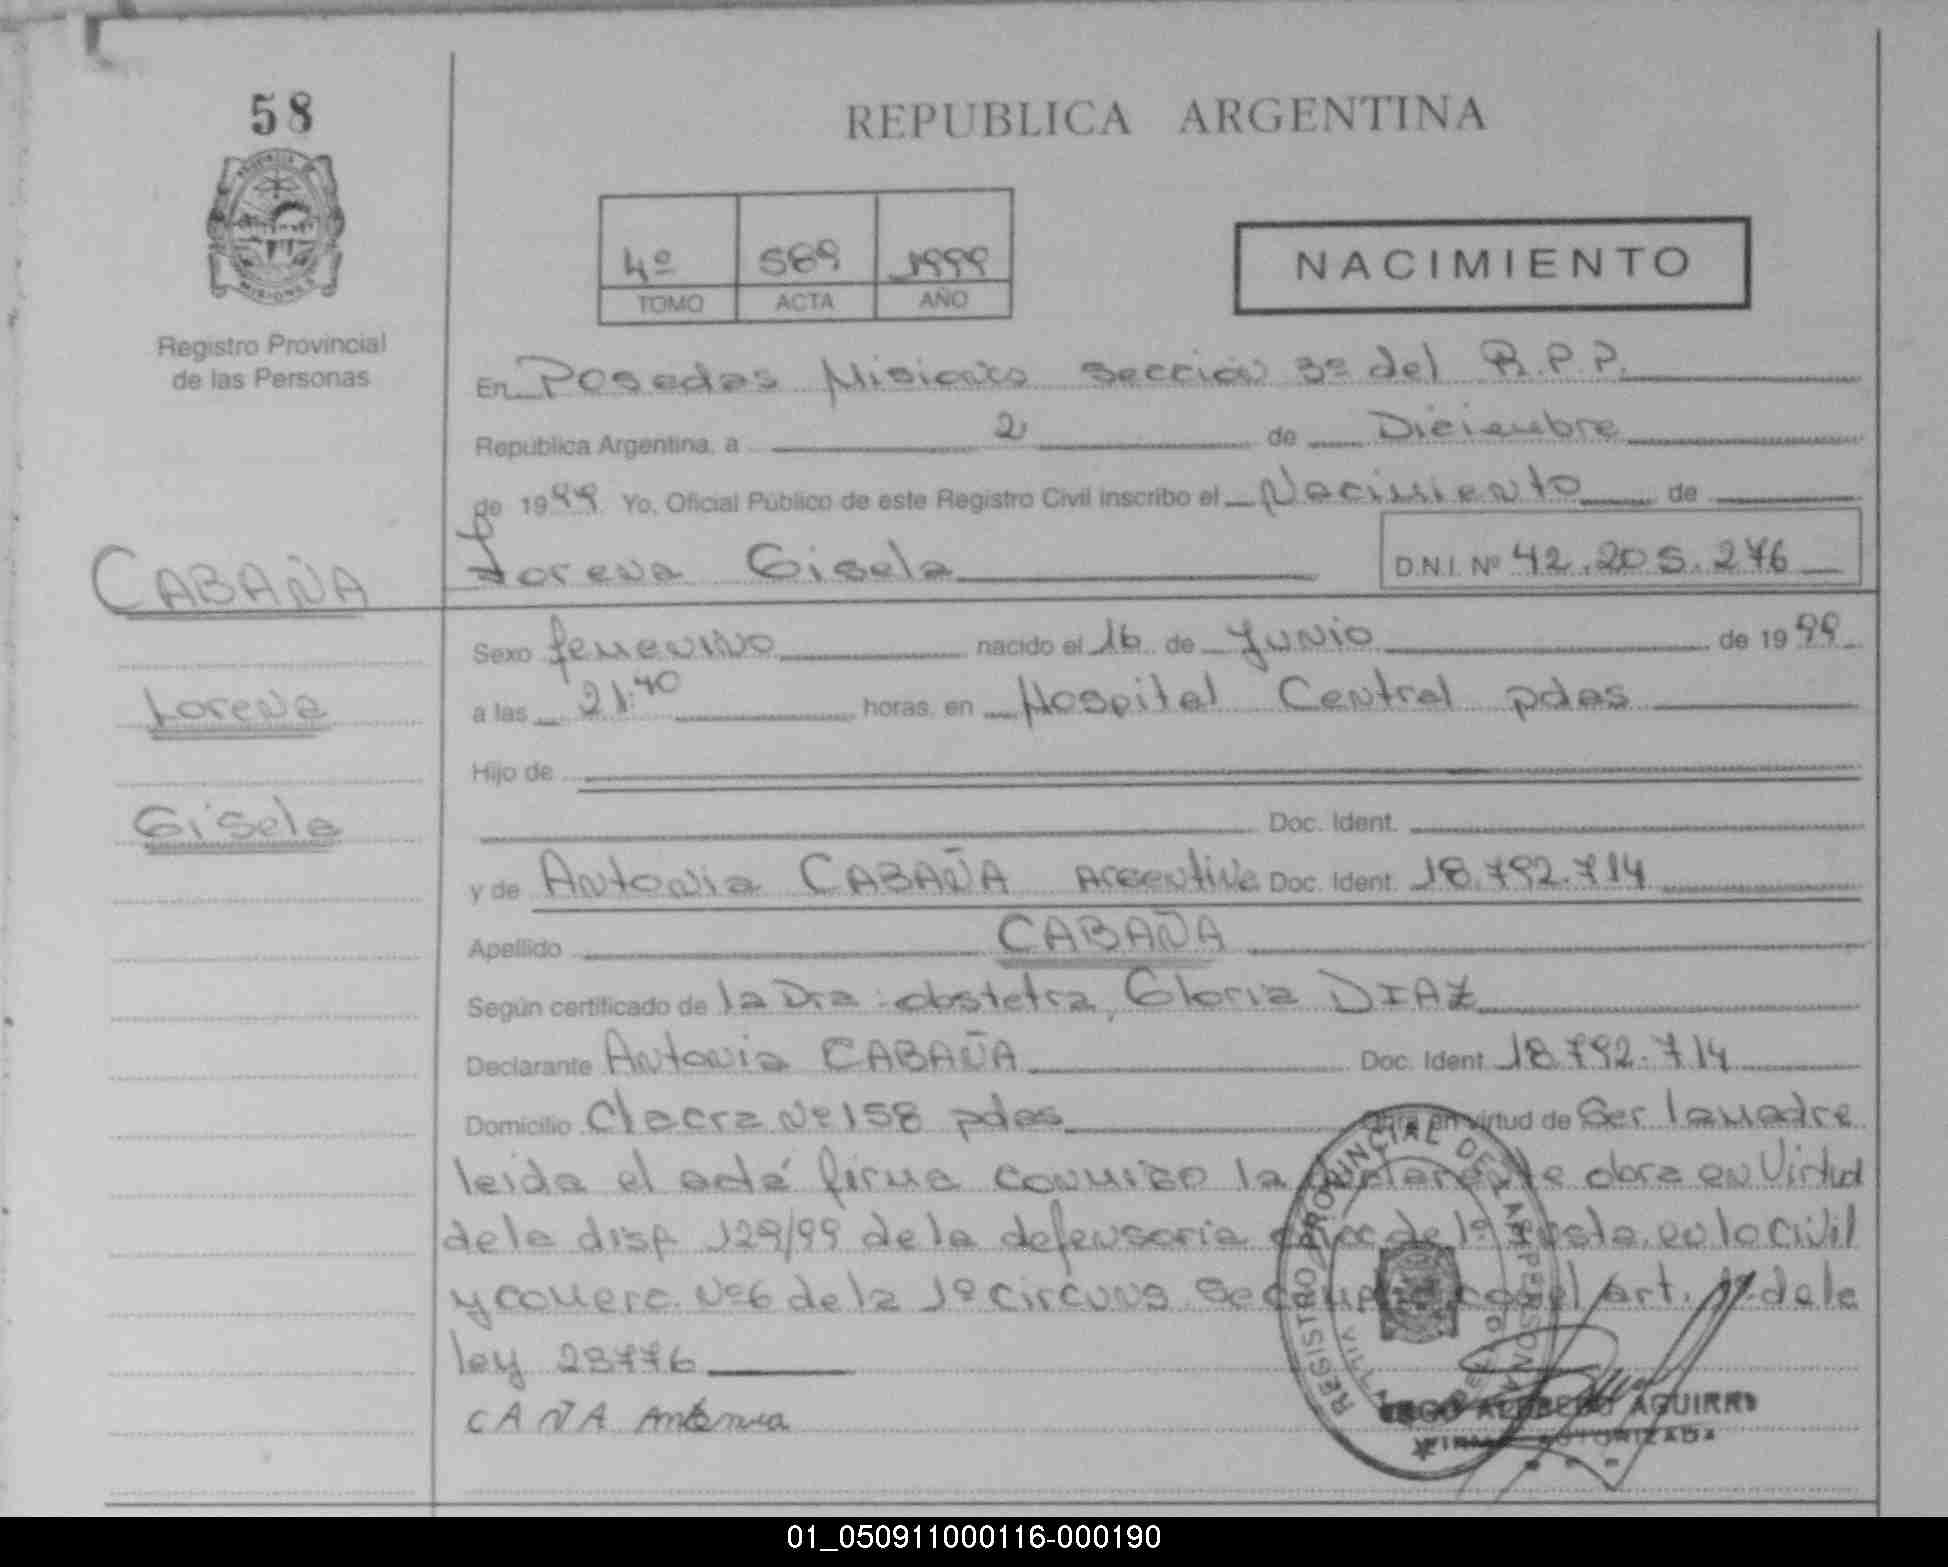 58
REPUBLICA ARGENTINA
4º 589 1999
TOMO ACTA AÑO
NACIMIENTO
Registro Provincial
de las Personas
En Posadas Misiones sección 3ª del R.P.P.
República Argentina, a 2 de Diciembre
de 1999 Yo, Oficial Público de este Registro Civil inscribo el Nacimiento de
Lorena Gisela D.N.I. Nº 42.205.276
CABAÑA
Lorena
Gisela
Sexo femenino nacido el 16 de Junio de 1999
a las 21:40 horas, en Hospital Central pdas
Hijo de
Doc. Ident.
y de Antonia CABAÑA Argentina Doc. Ident. 18.792.714
Apellido CABAÑA
Según certificado de la Dra: obstetra, Gloria DIAZ
Declarante Antonia CABAÑA Doc. Ident 18.792.714
Domicilio Chacra Nº 158 pdas Obra en virtud de Ser la madre
leida el acta firma conmigo la declarante obra en Virtud
de la disp 129/99 de la defensoria de 1º Insta. en lo Civil
y comerc. Nº 6 de la 1º circuns. se el art. 1º de la
ley 23776
CAÑA Antonia
REGISTRO PROVINCIAL DE LAS PERSONAS
ALFREDO AGUIRRE
FIRMA AUTORIZADA
01_050911000116-000190